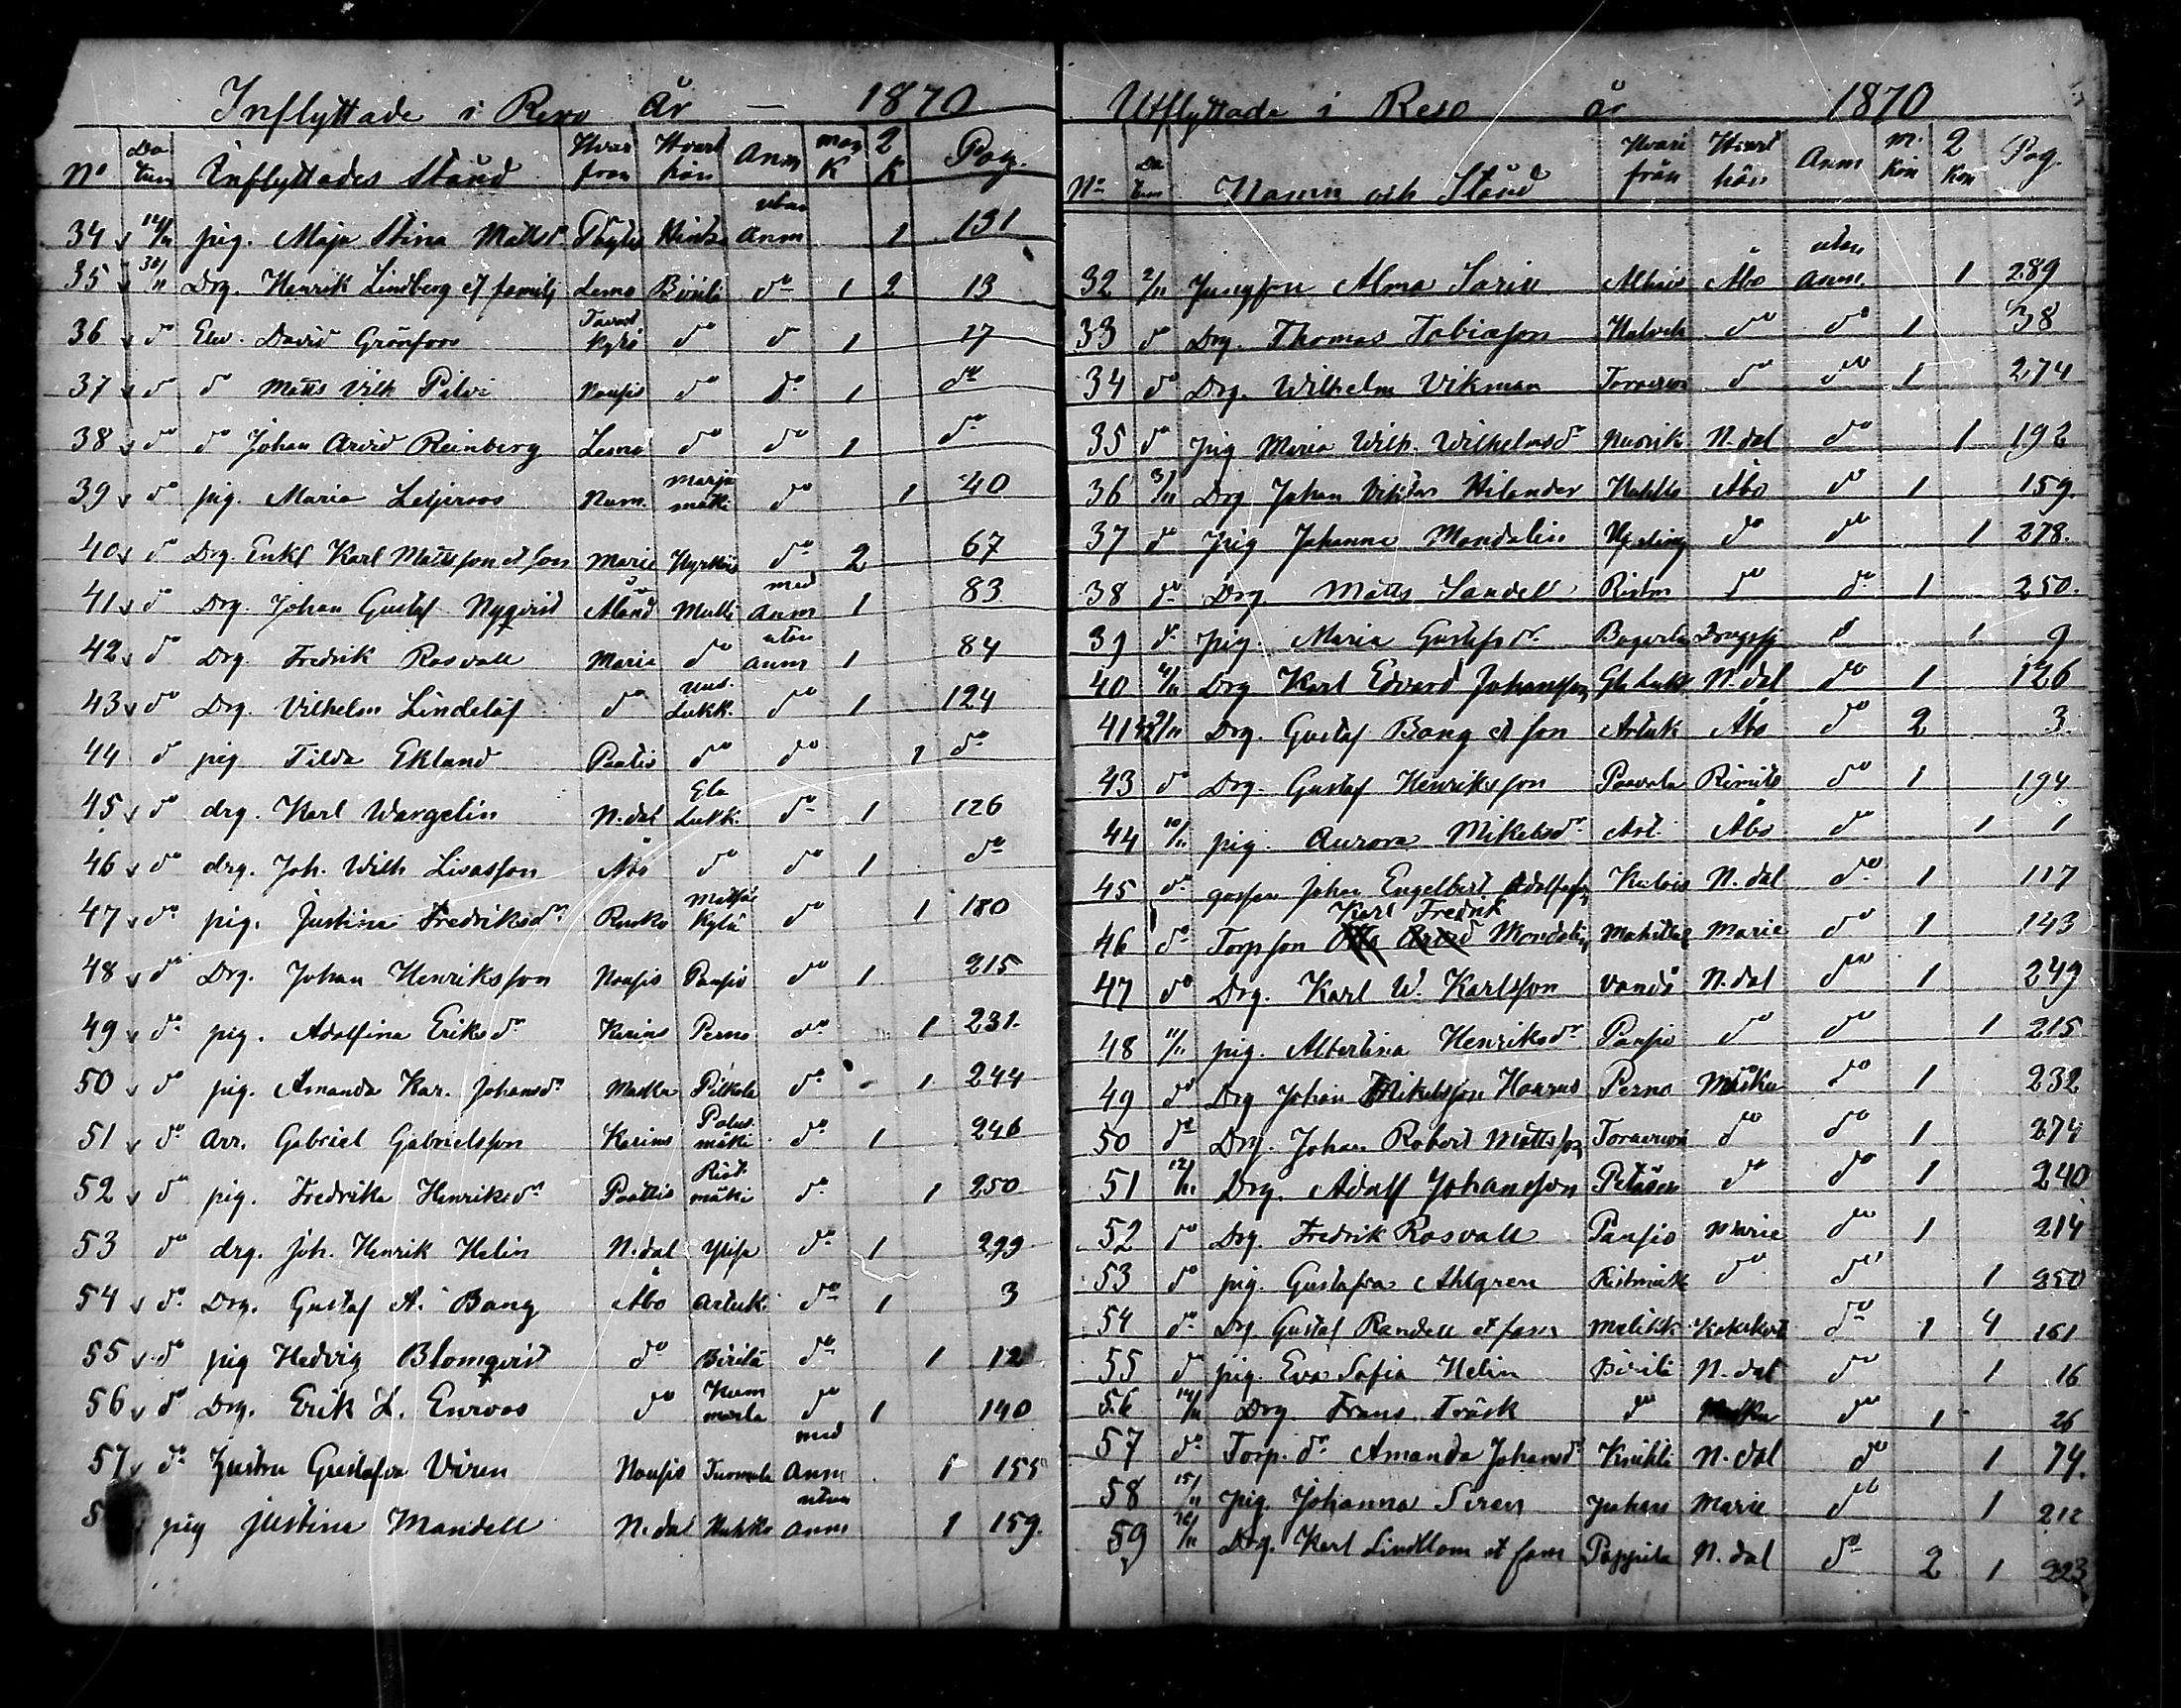 Inflyttade i Reso År — 1870
No Da tum Inflyttades Stånd Hvar från Hvart hän Anm man K 2 K Pag.
34 14/11 pig. Maja Stina Mattsdr Hinka utan Anm 1 131
35 30/11 Drg. Henrik Lindberg et familj Lemo Böilä do 1 2 13
36 do Elev. David Grönfors Tavast kyrö do do 1 17
37 do do Matts Vilh Pilvi Nousis do do 1 do
38 do do Johan Arvid Reinberg Lemo do do 1 do
39 do pig. Maria Leijeroos Num. marja mäki do 1 40
40 do Drg. Enkl Karl Mattsson et son Marie do 2 67
41 do Drg. Johan Gustaf Nyqvist Åland Mulli med Anm 1 83
42 do Drg Fredrik Rosvall Marie do utan anm 1 84
43 do Drg. Vilhelm Lindelöf do Lukk. do 1 124
44 do pig Tilda Eklund do do 1 do
45 do drg. Karl Wargelin N.dal Gla Lukk. do 1 126
46 do drg. Joh. Wilh Lisasson Åbo do do 1 do
47 do pig. Justina Fredriksdr Rusko kylä do 1 180
48 do Drg. Johan Henriksson Nousis Pansio do 1 215
49 do pig. Adolfina Eriksdr Karins Perno do 1 231
50 do pig. Amanda Kar. Johansdr Masku Pitkola do 1 244
51 do Arr. Gabriel Gabrielsson Karins mäki do 1 246
52 do pig. Fredrika Henriksdr Paattis Rist. mäki do 1 250
53 do drg. Joh. Henrik Helin N.dal do 1 299
54 do Drg. Gustaf A. Bang Åbo Artuk. do 1 3
55 do pig Hedvig Blomqvist do do 1 12
56 do Drg. Erik L. Enroos do Kum marla do 1 140
57 do Gustava Viren Nousis med Anm 1 155
5 pig Justina Mandell N.dal utan Anm 1 159.
Utflyttade i Reso år 1870
No Da tum Namn och Stånd Hvari från Hvart hän Anm m. kön 2 kön Pag.
32 2/11 Jungfru Alma Åbo utan anm. 1 289
33 do Drg. Thomas Tobiasson do do 1 38
34 do Drg. Wilhelm Vikman do do 1 274
35 do pig Maria Wilh. Wilhelmsdr N.dal do 1 192
36 3/11 Drg Johan Viktor Hilander Åbo do 1 159
37 do pig Johanna Mandelin do do 1 278.
38 do Drg. Matts Sandell Ristm do do 1 250.
39 do pig. Maria Gustafsdr Dragsfj do 1 9
40 4/11 Drg Karl Edvard Johansson Gla Lukk N.dal do 1 126
41 42 9/11 Drg. Gustaf Bang et son Artuk Åbo do 2 3
43 do Drg. Gustaf Henriksson Paavola Rimito do 1 194
44 10/11 pig. Aurora Mikelsdr Art. Åbo do 1 1
45 do gossen Johan Engelbert Adolfsson N.dal do 1 117
Karl Fredrik
46 do Torpson Mandelin Marie do 1 143
47 do Drg. Karl W. Karlsson N.dal do 1 249
48 11/11 pig. Albertina Henriksdr Pansio do do 1 215
49 do Drg Johan Mikelsson Perno Masku do 1 232
50 do Drg. Johan Robert Mattsson do do 1 274
51 12/11 Drg. Adolf Johansson do do 1 240
52 do Drg. Fredrik Rosvall Pansio Marie do 1 214
53 do pig. Gustafva Ahlgren Ristmäk do do 1 250
54 do Drg. Gustaf Randell et fam do 1 4 161
55 do pig. Eva Sofia Helin N.dal do 1 16
56 14/11 Drg. Frans Träsk do Masku do 1 26
57 do Torp. dr Amanda Johansd N.dal do 1 74.
58 15/11 pig. Johanna Siren Marie do 1 212
59 Drg. Karl Lindblom et fam N.dal do 2 1 223